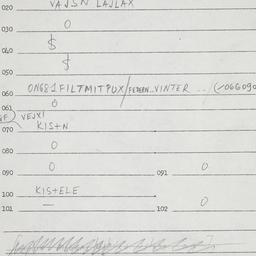 020 VAJSN LAJLAX
030 0
040 $
050 $
060 ON681FILTMITPUX/FEDERN..VINTER .. (
061 0
VEJX!
070 KIS+N
080 0
090 0 091 0
100 KIS+ELE
101 — 102 0